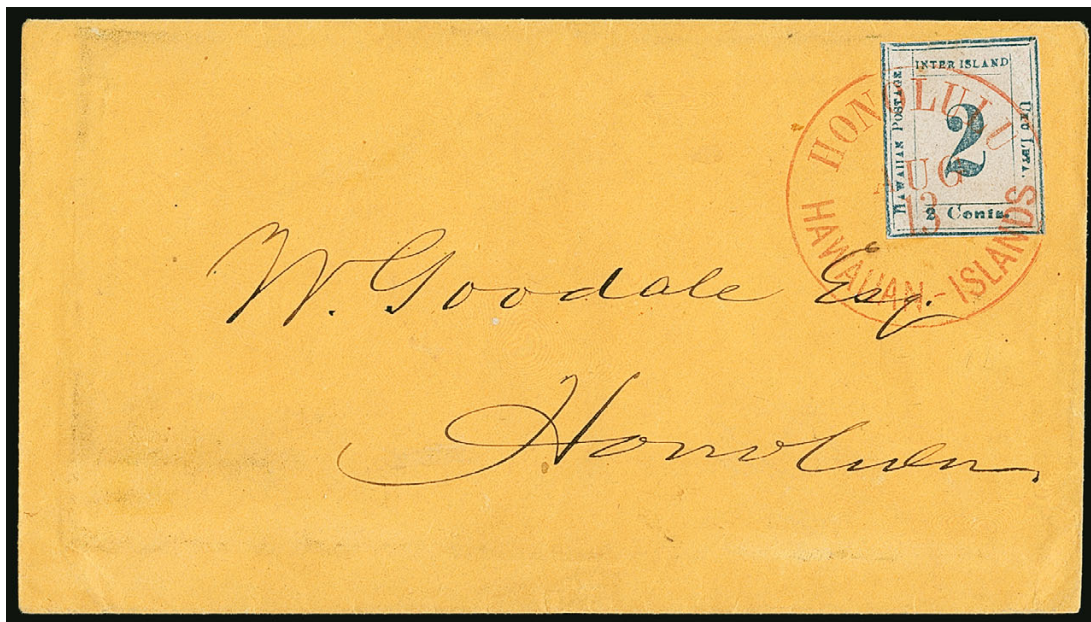 INTER ISLAND
HAWAIIAN POSTAGE
2
UKU LETA.
2 Cents.
HONOLULU
AUG
13
HAWAIIAN-ISLANDS
W. Goodale Esq.
Honolulu